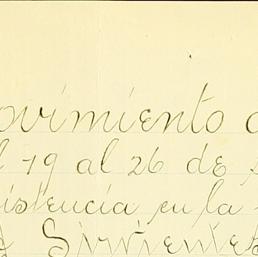 ovimiento d
l 19 al 26 de s
istencia en la
Sirvientes